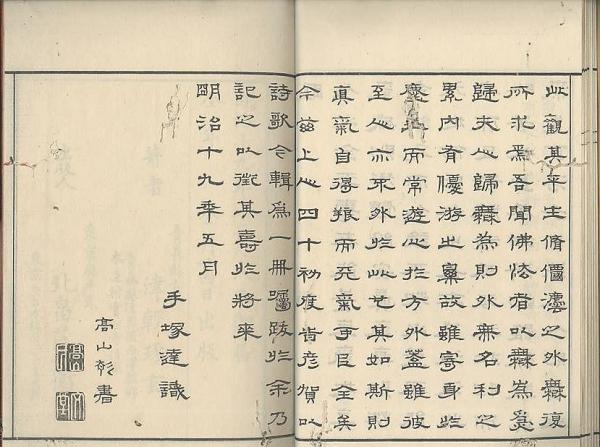 此觀其平生脩灋之外無復
所求焉吾聞佛法者以無為為
歸夫心歸無為則外無名利之
累內有優游之樂故雖寄身於
塵垢而常遊心於方外蓋雖彼
至人亦不外於此也其如斯則
真氣自得振而元氣可全矣
今茲上人四十初度賀以
詩歌今輯為一冊囑跋於余乃
記之以徵其壽於將來
明治十九年五月
手塚達識
高山彰書